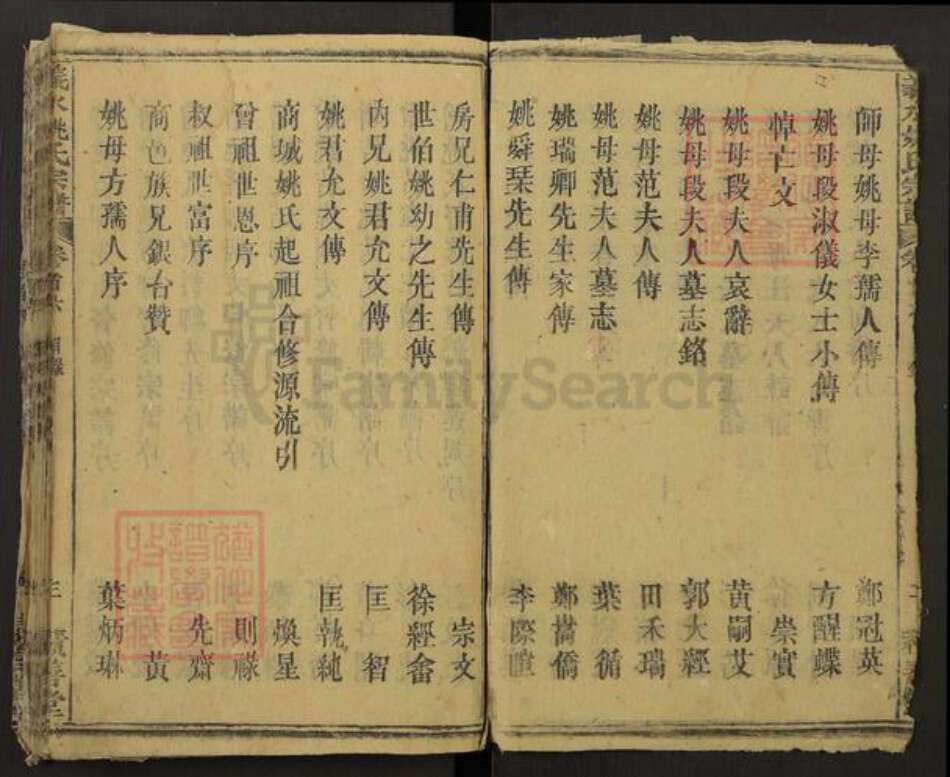 師母姚母李孺人傳 鄭冠英
姚母段淑儀女士小傳 方醒蝶
悼亡文 崇實
姚母段夫人哀辭 黃嗣艾
姚母段夫人墓志銘 郭大經
姚母范夫人傳 田禾瑞
姚母范夫人墓志 葉循
姚瑞卿先生家傳 鄭搢僑
姚舜琹先生傳 李際暄
房兄仁甫先生傳 崇文
世伯姚幼之先生傳 徐經畬
內兄姚君允文傳 匡智
姚君允文傳 匡執純
商城姚氏起祖合修源流引 煥星
曾祖世恩序 則祿
叔祖世富序 先齋
商邑族兄銀台贊 黃
姚母方孺人序 葉炳琳
義水姚氏宗譜 卷首六 目錄 三 寶善堂
FamilySearch